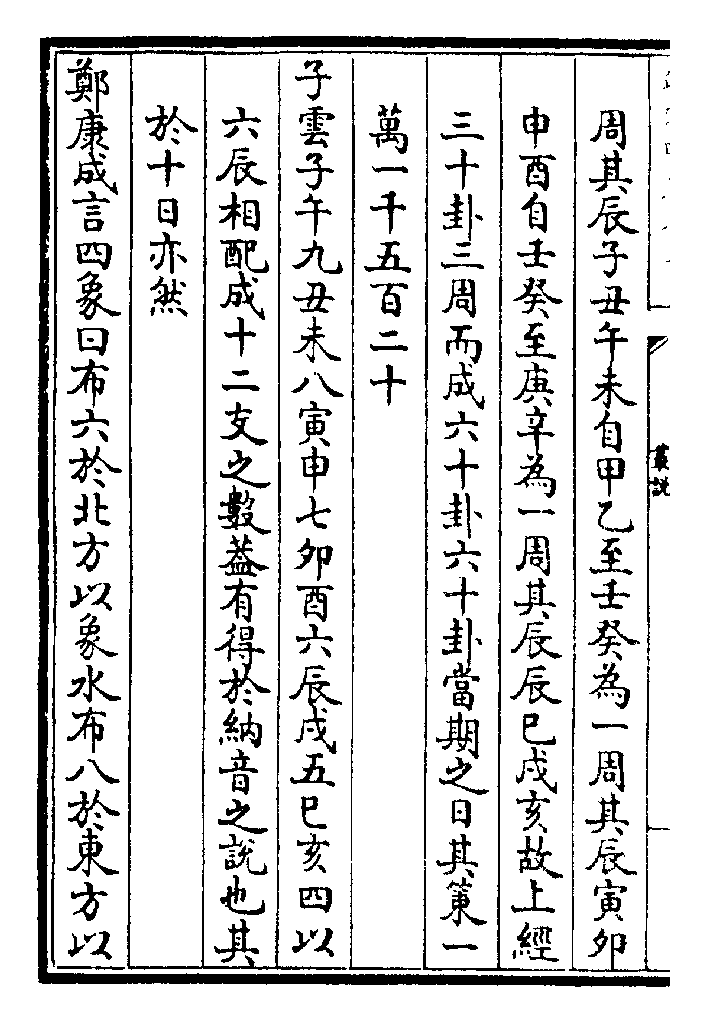 周其辰子丑午未自甲乙至壬癸為一周其辰寅卯
申酉自壬癸至庚辛為一周其辰辰巳戌亥故上經
三十卦三周而成六十卦六十卦當期之日其策一
萬一千五百二十
子雲子午九丑未八寅申七卯酉六辰戌五巳亥四以
六辰相配成十二支之數蓋有得於納音之說也其
於十日亦然
鄭康成言四象曰布六於北方以象水布八於東方以
叢說